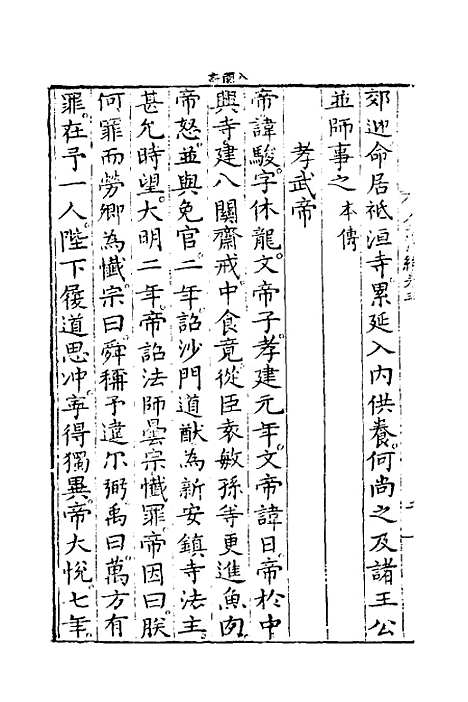 八關齋
郊迎命居祗洹寺累延入內供養何尚之及諸王公
並師事之本傳
孝武帝
帝諱駿字休龍文帝子孝建元年文帝諱日帝於中
興寺建八關齋戒中食竟從臣袁敏孫等更進魚肉
帝怒並與免官二年詔沙門道猷為新安鎮寺法主
甚允時望大明二年帝詔法師曇宗懺罪帝因曰朕
何罪而勞卿為懺宗曰舜稱予違尔弼禹曰萬方有
罪在予一人陛下履道思冲寕得獨異帝大悅七年